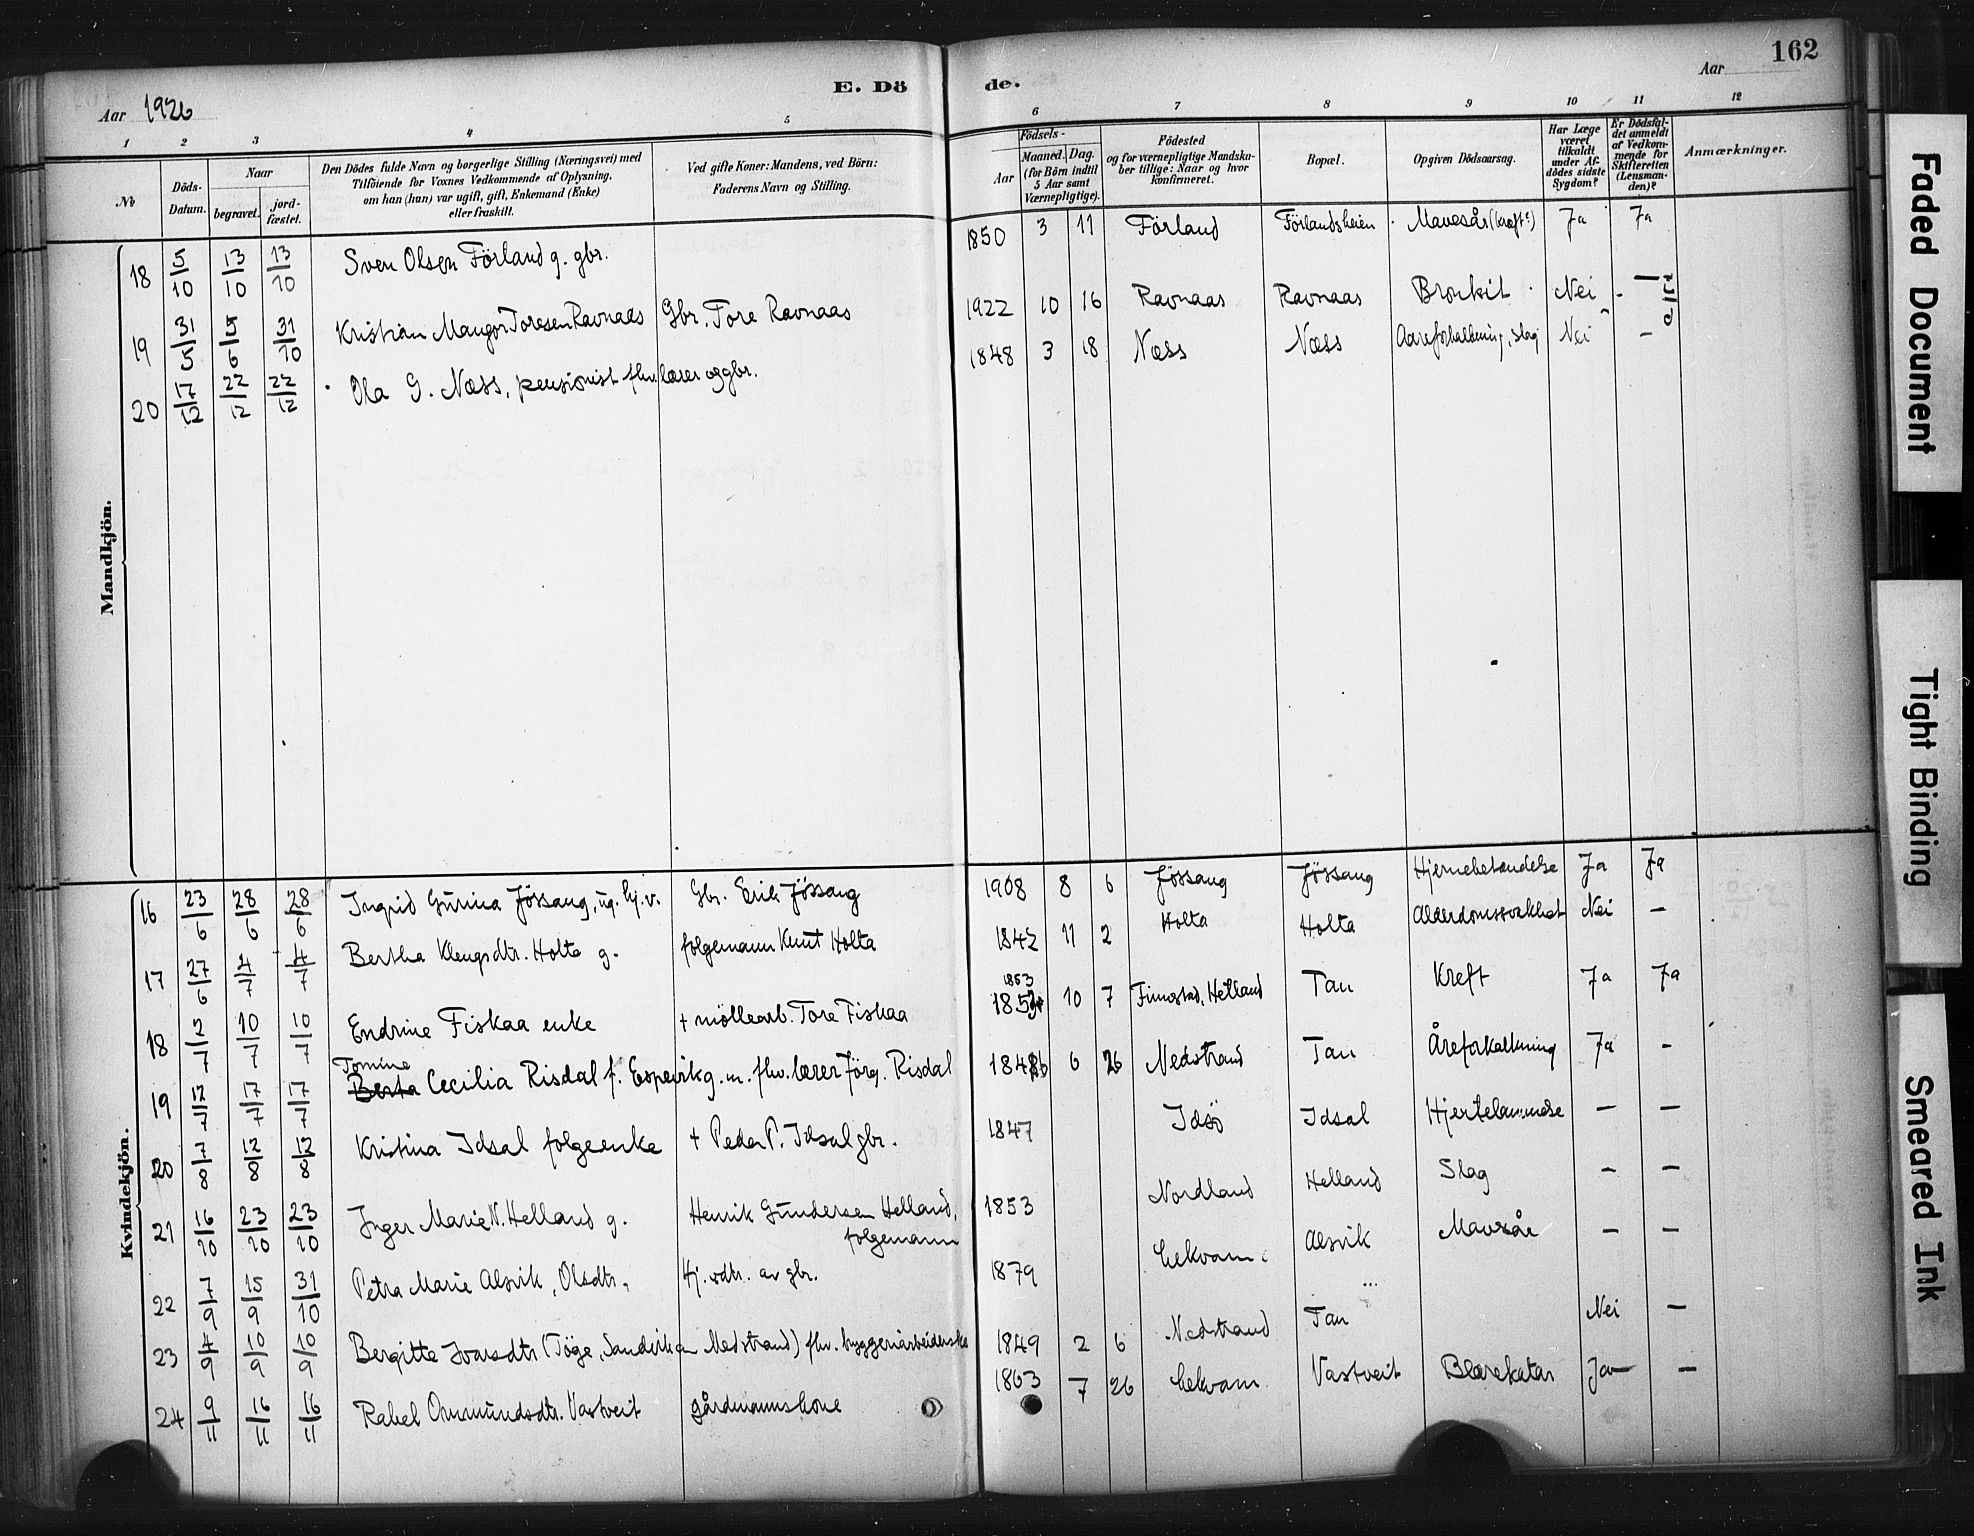 162
E. Dö de.
Aar 1926
Aar
1 2 3 4 5 6 7 8 9 10 11 12
No
Döds-Datum.
Naar
begravet.
jord-fæstet.
Den Dödes fulde Navn og borgerlige Stilling (Næringsvei) med
Tilföiende for Voxnes Vedkommende af Oplysning,
om han (hun) var ugift, gift, Enkemand (Enke)
eller fraskilt.
Ved gifte Koner: Mandens, ved Börn:
Faderens Navn og Stilling.
Födsels-
Aar
Maaned. Dag.
(for Börn indtil
5 Aar samt
Værnepligtige).
Födested
og for værnepligtige Mandska-
ber tillige: Naar og hvor
konfirmeret.
Bopæl.
Opgiven Dödsaarsag.
Har Læge
været
tilkaldt
under Af-
dödes sidste
Sygdom?
Er Dödsfal-
det anmeldt
af Vedkom-
mende for
Skifteretten
(Lensman-
den)?
Anmærkninger.
Mandkjön.
18 5/10 13/10 13/10 Sven Olsen Förland g. gbr. 1850 3 11 Förland Förlandsheien Mavesår (kreft?) Ja Ja
19 31/5 5/6 31/10 Kristian Maugor Toresen Ravnaas Gbr. Tore Ravnaas 1922 10 16 Ravnaas Ravnaas Bronkit Nei -
20 17/12 22/12 22/12 Ola G. Næss, pensionist fhv. lærer og gbr. 1848 3 18 Næss Næss Aareforkalkning, slag Nei -
Kvindekjön.
16 23/6 28/6 28/6 Ingrid Gurina Jössang, ug. hj. v. Gbr. Erik Jössang 1908 8 6 Jössang Jössang Hjernebetendelse Ja Ja
17 27/6 4/7 4/7 Bertha Klengsdtr. Holta g. folgemann Knut Holta 1842 11 2 Holta Holta Alderdomssvakhet Nei -
18 2/7 10/7 10/7 Endrine Fiskaa enke + möllearb. Tore Fiskaa 1853 10 7 Helland Tau Kreft Ja Ja
Tomine
19 12/7 17/7 17/7 Berta Cecilia Risdal f. Espevik g. m. fhv. lærer Jörg. Risdal 6 26 Nedstrand Tau Åreforkalkning Ja -
20 7/8 12/8 12/8 Kristina Idsal folgeenke + Peder P. Idsal gbr. 1847 Idsö Idsal Hjertelammelse - -
21 16/10 23/10 23/10 Inger Marie N. Helland g. Henrik Gundersen Helland, folgemann 1853 Nordland Helland Slag - -
22 7/9 15/9 31/10 Petra Marie Alsvik, Olsdtr. Hj. vdtr. av gbr. 1879 Lekvam Alsvik Mavesår - -
23 4/9 10/9 10/9 Bergitte Ivarsdtr. (Töge, Sandvik Nedstrand) fhv. hyggeriarbeiderske 1849 2 6 Nedstrand Tau Nei -
24 9/11 16/11 16/11 Rakel Ommundsdtr. Vastveit gårdmannskone 1863 7 26 Lekvam Vastveit Blærekatar Ja -
Faded Document
Tight Binding
Smeared Ink